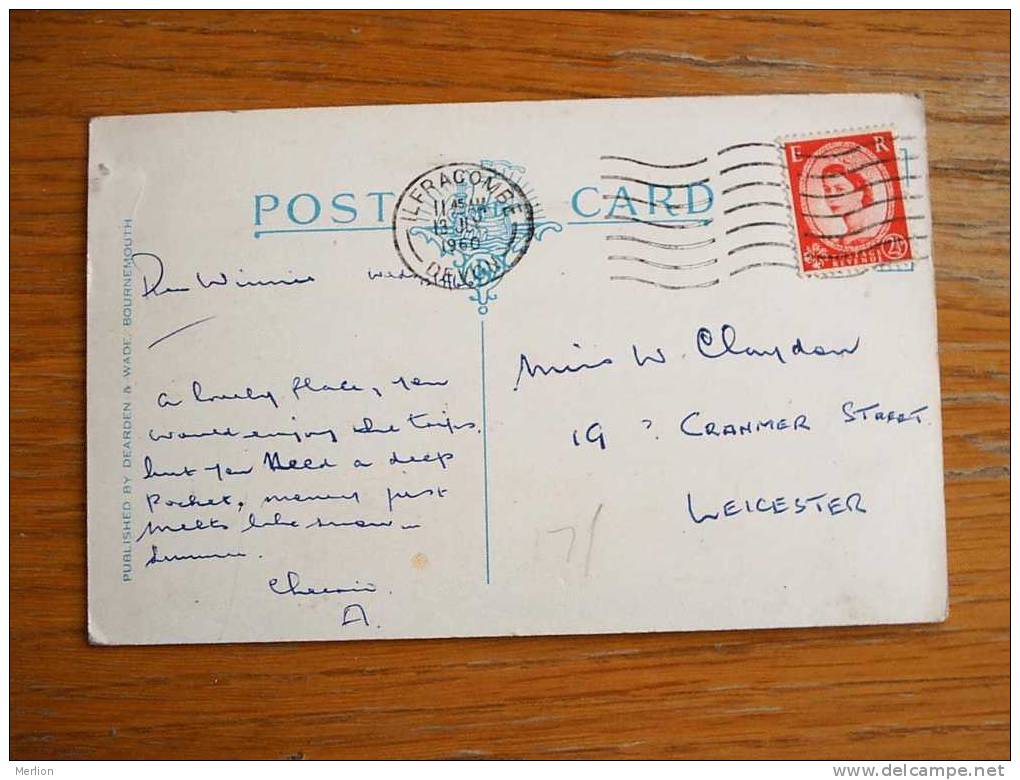 POST CARD
ILFRACOMBE
11 45 AM
13 JLY
1960
DEVON
E R
POSTAGE
REVENUE
2½D
PUBLISHED BY DEARDEN & WADE, BOURNEMOUTH
Dear Winnie
Wed
a lovely place, you
would enjoy the trips,
but you Need a deep
Pocket, money just
melts like snow in
Summer.
Cheerio
A.
Miss W. Claydon
19 CRANMER STREET
LEICESTER
71
Merlion
www.delcampe.net